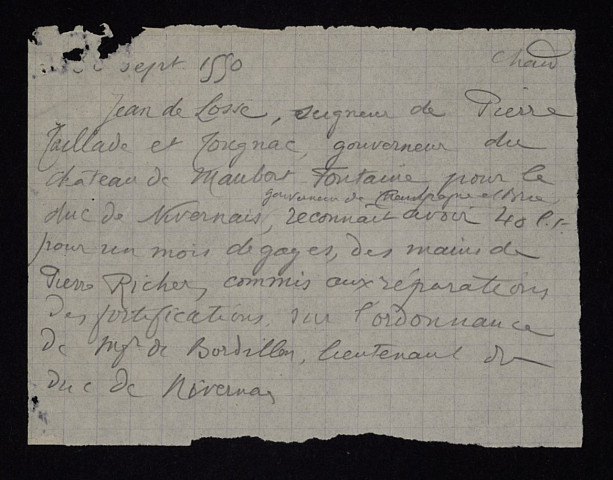 sept. 1550 Chau
Jean de Losse, seigneur de Pierre
Taillade et Jougnac, gouverneur du
château de Maubert Fontaine pour le
gouverneur de Champagne et Brie,
duc de Nivernais, reconnait avoir 40 l. t.
pour un mois de gages, des mains de
Pierre Richer, commis aux réparations
des fortifications, sur l'ordonnance
de Mgr de Bordillon, lieutenant du
duc de Nivernais